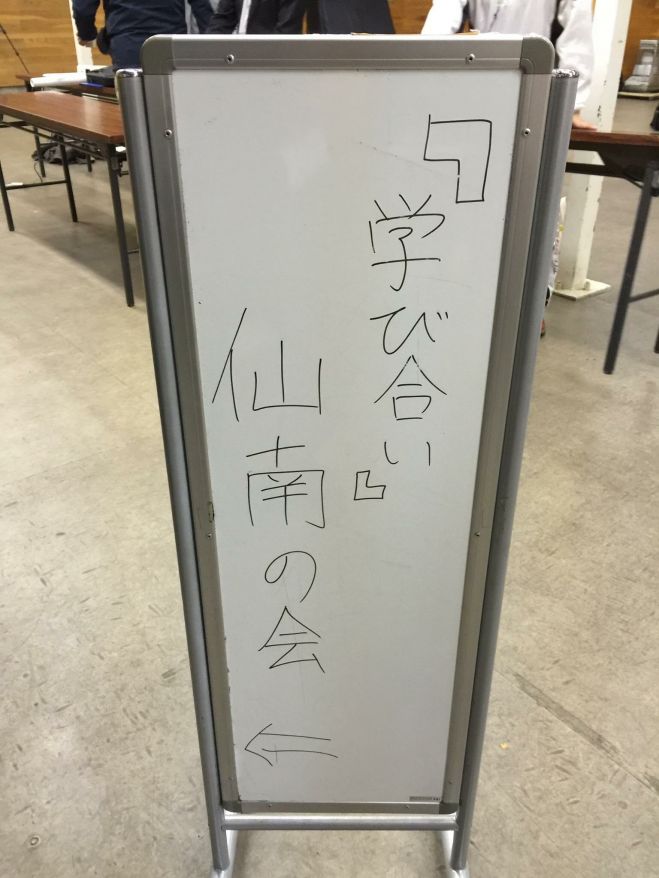 『学び合い』
仙南の会
⇐